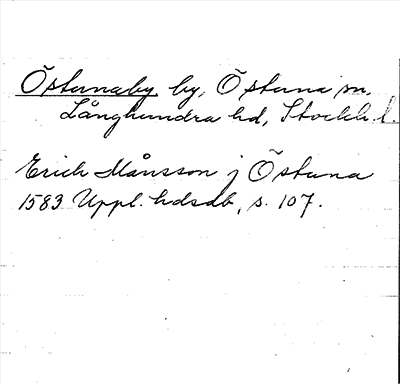 Östunaby by, Östuna sn.
Långhundra hd, Stockh. l.
Erich Månsson j Östuna
1583 Uppl. hdsdb, s. 107.